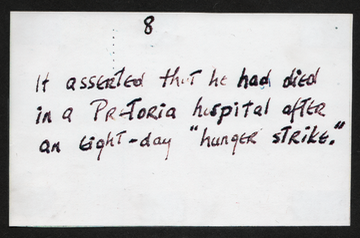 8
It asserted that he had died
in a Pretoria hospital after
an eight-day "hunger strike."